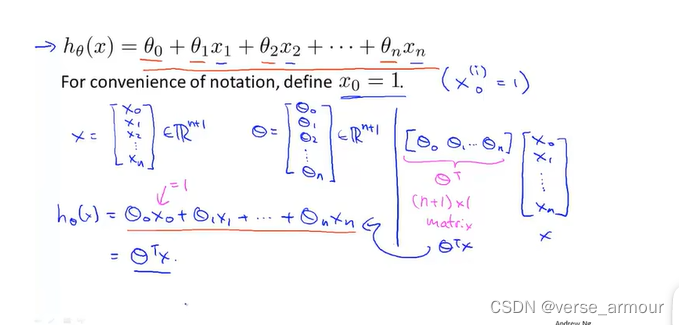 → hθ(x) = θ0 + θ1x1 + θ2x2 + ··· + θnxn
For convenience of notation, define x0 = 1. (x0^(i) = 1)
x = [x0 x1 x2 ⋮ xn] ∈ ℝ^(n+1) θ = [θ0 θ1 θ2 ⋮ θn] ∈ ℝ^(n+1)
[θ0 θ1 ... θn] [x0 x1 ⋮ xn]
θ^T
(n+1)×1
matrix
x
θ^T x
= 1
hθ(x) = θ0x0 + θ1x1 + ··· + θnxn
= θ^T x.
CSDN @verse_armour
Andrew Ng